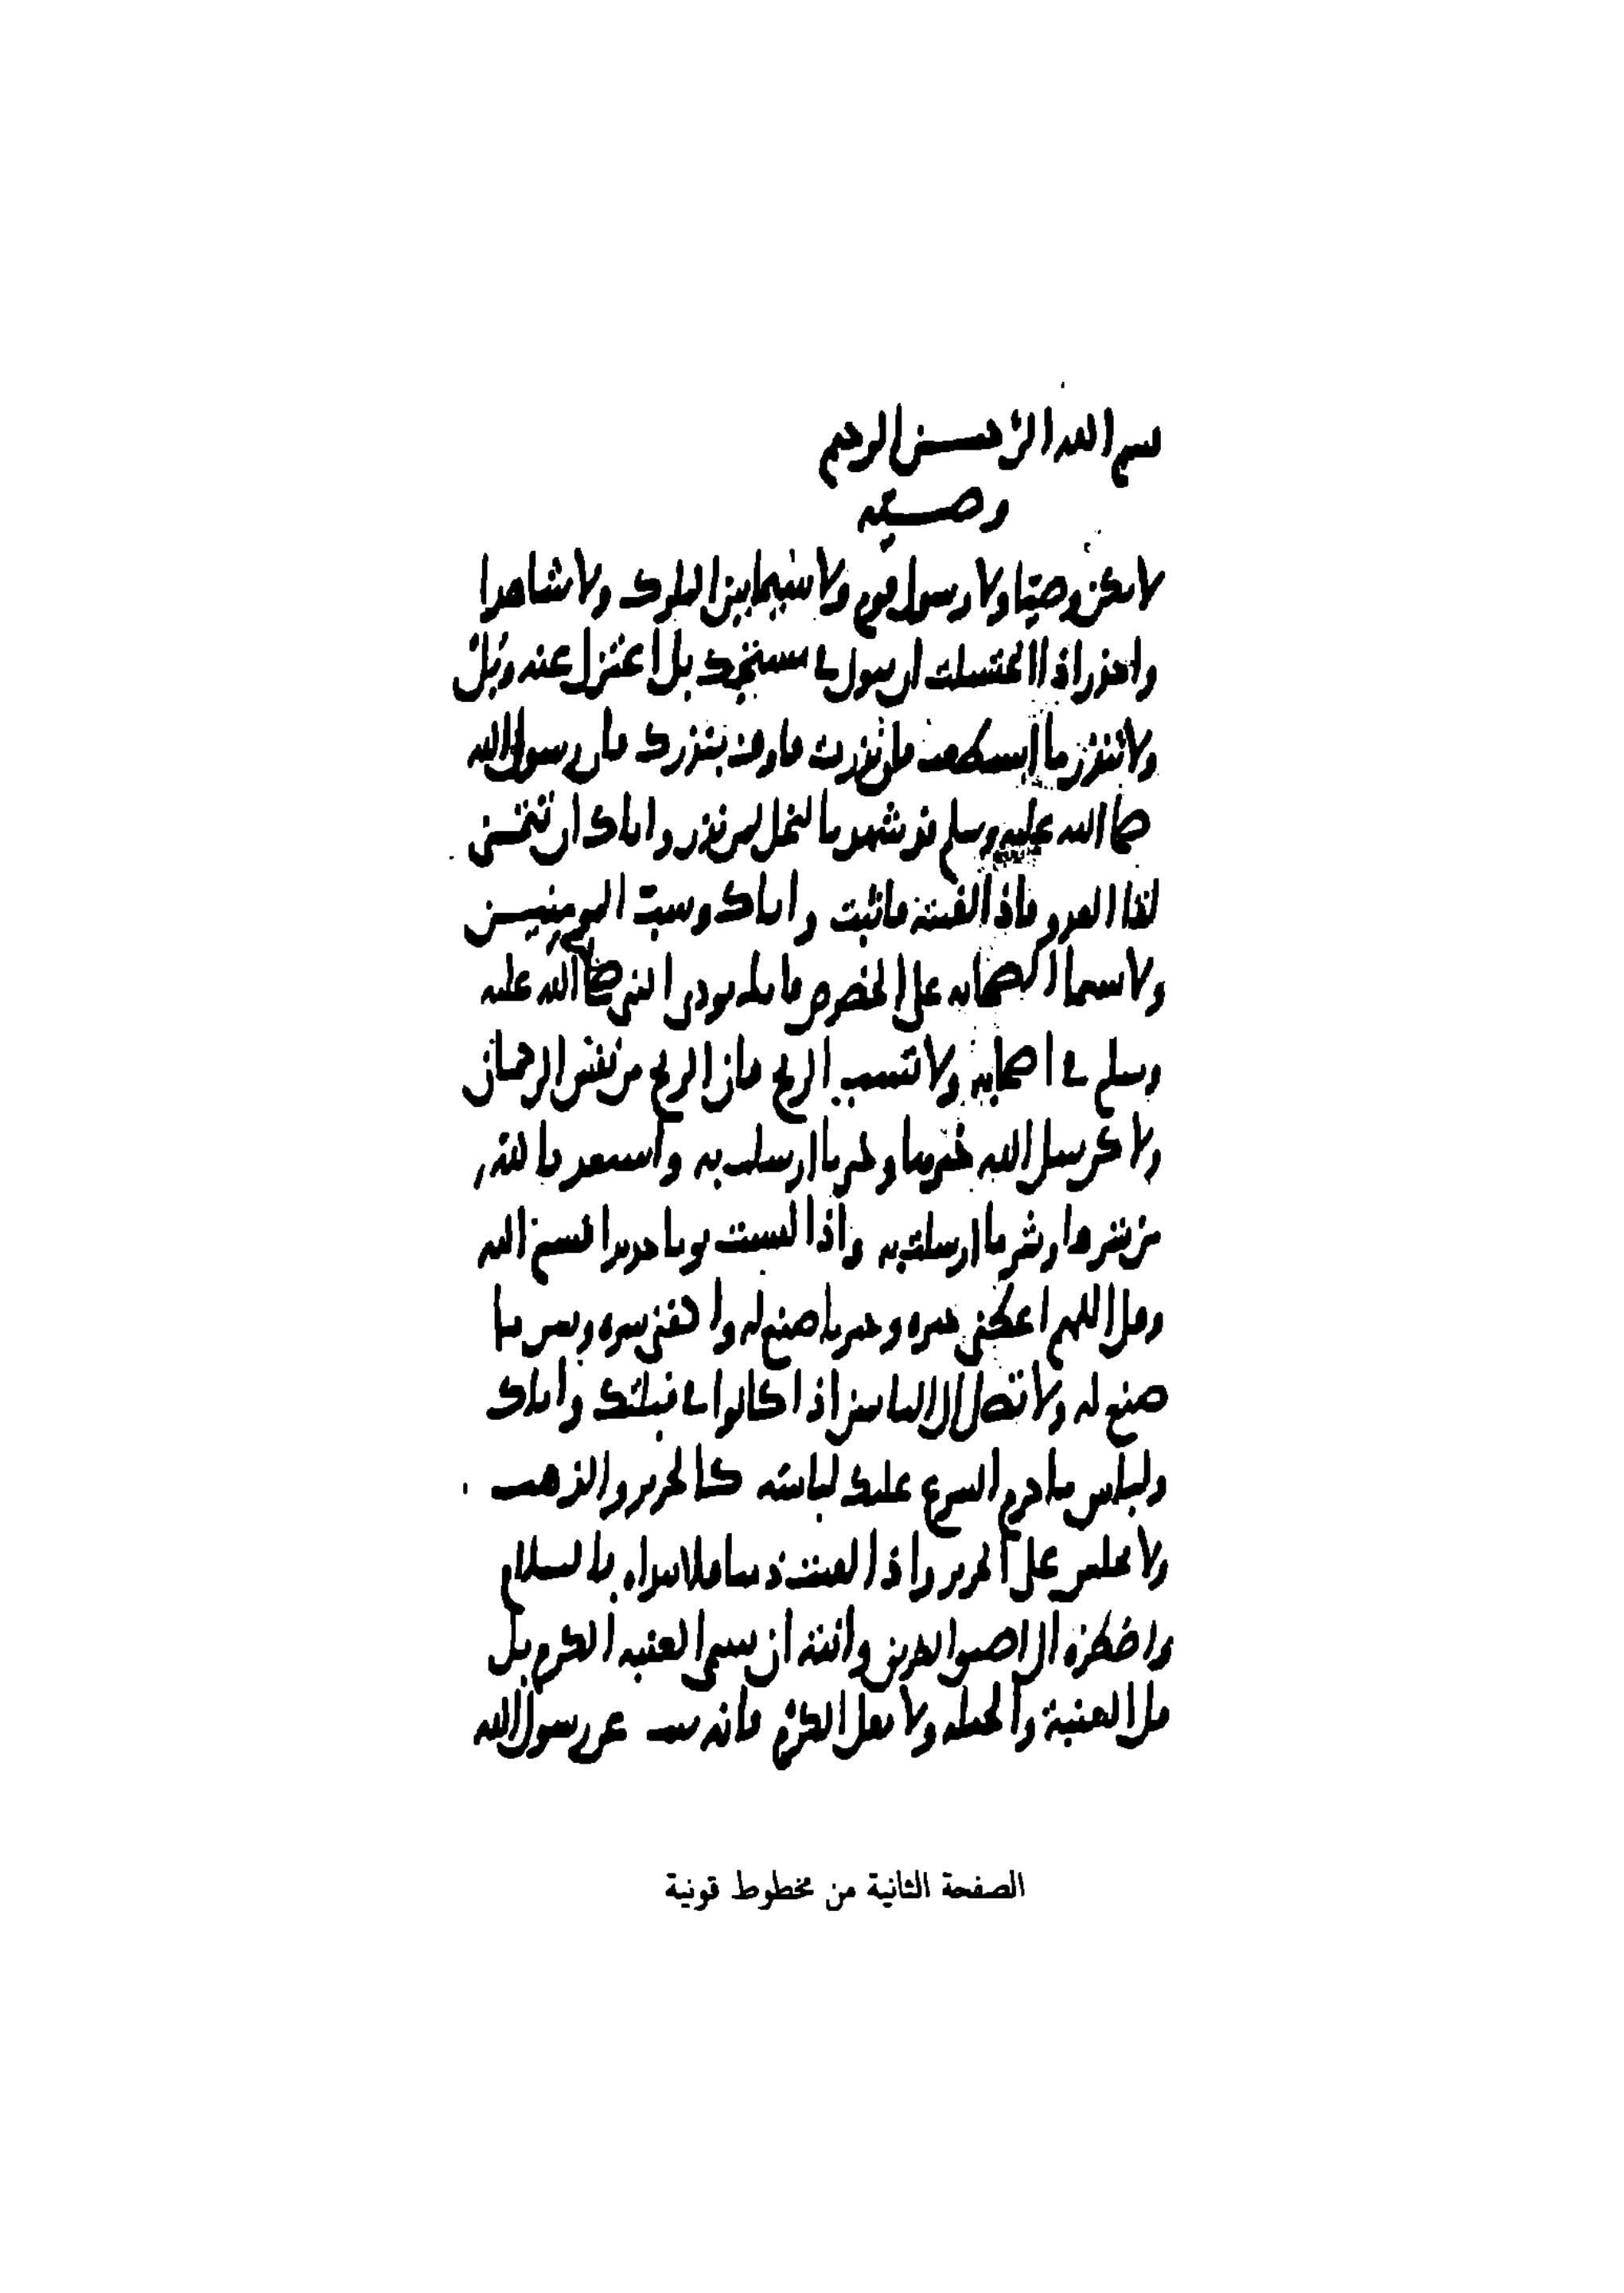 بسم الله الرحمن الرحيم
وصية
لا تكن وصيا ولا رسول قوم ولا سيما بين الملوك ولا شاهدا
واحذر اذا اغتسلت ان تبول في مستحمك بل اعتزل عنه وبل
ولا تنذر ما استطعت فان نذرت فاوف بنذرك فان رسول الله
صلى الله عليه وسلم قد شهد بالبخل لمن نذر واياك ان تتمنى
لقا العدو فاذا لقيته فاثبت واياك وسب المومنين
ولا سيما الصحابه على الخصوص فانك توذي النبي صلى الله عليه
وسلم في اصحابه ولا تسب الريح فان الريح من نفس الرحمان
ولاكن سل الله خيرها وخير ما ارسلت به واستعذ بالله
من شرها وشر ما ارسلت به واذا لبست ثوبا جديدا فسم الله
وقل اللهم اعطني خيره وخير ما صنع له واكفني شره وشر ما
صنع له ولا تصل الى النايمين اذا كانوا في قبلتك واياك
ولباس ما حرم الشرع عليك لباسه كالحرير والذهب
ولا تجلس على الحرير واذا لقيت ذميا فلا تبداه بالسلام
واضطره الى اضيق الطريق وانته ان تسمي العنبه الكرم بل
قل العنبة والحبله ولا تقل الكرم فانه ثبت عن رسول الله
الصفحة الثانية من مخطوط قونية